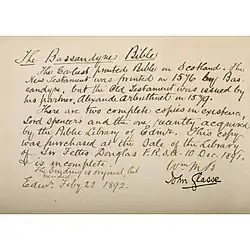 The Bassandyne Bible
The Earliest printed Bible in Scotland. The
New Testament was printed in 1576 by Bas-
sandyne, but the Old Testament was issued by
his partner, Alexander Arbuthnott in 1579.
There are two complete copies in existence,
Lord Spencers and the one recently acquired
by the Public Library of Edinr. This copy
was purchased at the Sale of the Library
of Sir Fettes Douglas P.R.S.A. 10 Dec. 1891.
It is incomplete.
The binding is original, but
Edinr. Feby 22 1892.
John Glasse